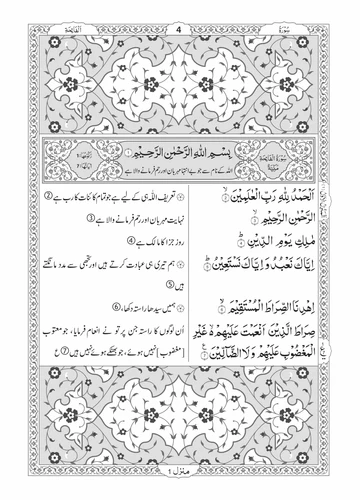 سُوْرَةُ 4 اَلْفَاتِحَة
سُوْرَةُ الْفَاتِحَة مَكِّيَّة
بِسْمِ اللّٰهِ الرَّحْمٰنِ الرَّحِيْمِ
اللہ کے نام سے جو بے انتہا مہربان اور رحم فرمانے والا ہے
اَلْحَمْدُ لِلّٰهِ رَبِّ الْعٰلَمِيْنَ
تعریف اللہ ہی کے لیے ہے جو تمام کائنات کا رب ہے ②
الرَّحْمٰنِ الرَّحِيْمِ
نہایت مہربان اور رحم فرمانے والا ہے ③
مٰلِكِ يَوْمِ الدِّيْنِ
روزِ جزا کا مالک ہے ④
اِيَّاكَ نَعْبُدُ وَ اِيَّاكَ نَسْتَعِيْنُ
ہم تیری ہی عبادت کرتے ہیں اور تجھی سے مدد مانگتے
ہیں ⑤
اِهْدِنَا الصِّرَاطَ الْمُسْتَقِيْمَ
ہمیں سیدھا راستہ دکھا، ⑥
صِرَاطَ الَّذِيْنَ اَنْعَمْتَ عَلَيْهِمْ غَيْرِ
اُن لوگوں کا راستہ جن پر تو نے انعام فرمایا، جو معتوب
الْمَغْضُوْبِ عَلَيْهِمْ وَ لَا الضَّآلِّيْنَ
[مغضوب] نہیں ہوئے، جو بھٹکے ہوئے نہیں ہیں ⑦ ع
منزل ١